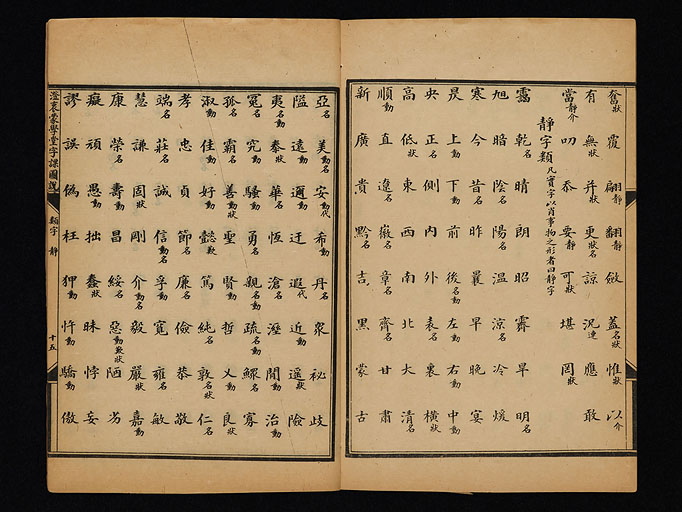 奮狀 覆 翩靜 翻靜 斂 蓋名狀 惟狀 以介
有 無狀 并狀 更狀名 諒 況連 應 敢
當靜介 叨 忝 要靜 可狀 堪 罔狀
靜字類 凡實字以肖事物之形者曰靜字
靄 乾名 晴 朗 昭 霽 旱 明名
旭 暗 陰名 陽名 温 涼名 冷 煖
寒 今 昔名 昨 曩 早 晚 宴
是 上動 下動 前 後名動 左動 右動 中動
央 正名 側 内 外 表名 裏 橫狀
高 低狀 東 西 南 北 大 清名
順動 直 遼名 巖名 章名 齊名 甘 肅
新 廣 貴 黔名 吉 黑 蒙 古
亞名 美動名 安動代 希動 丹名 衆 祕 歧
隘 遠動 邇動 迂 遐代 近動 遥狀 險
夷名動 泰狀 華名 恆 滄名 溼 閒動 治動
冤名 究動 騷動 勇名 親名動 疏名動 鰥名 寡
孤名 霸名 善動狀 聖 賢動 哲 乂動 良狀
淑動 佳動 好動 懿歎 篤 純名 敦名狀 仁名
孝名 忠 貞 節名 廉名 儉 恭 敬
端名 莊名 誠 信動名 孚動 寬 雍名 敏
慧 謙 固狀 剛 介動名 毅 嚴狀 嘉動
康名 榮名 壽動 昌 綏名 惡動歎狀 陋 劣
癡 頑 愚動 拙 蠢狀 昧 悖 妄
謬 誤 僞 枉 狎動 忤動 驕動 傲
澄衷蒙學堂字課圖説 類字 靜 十五